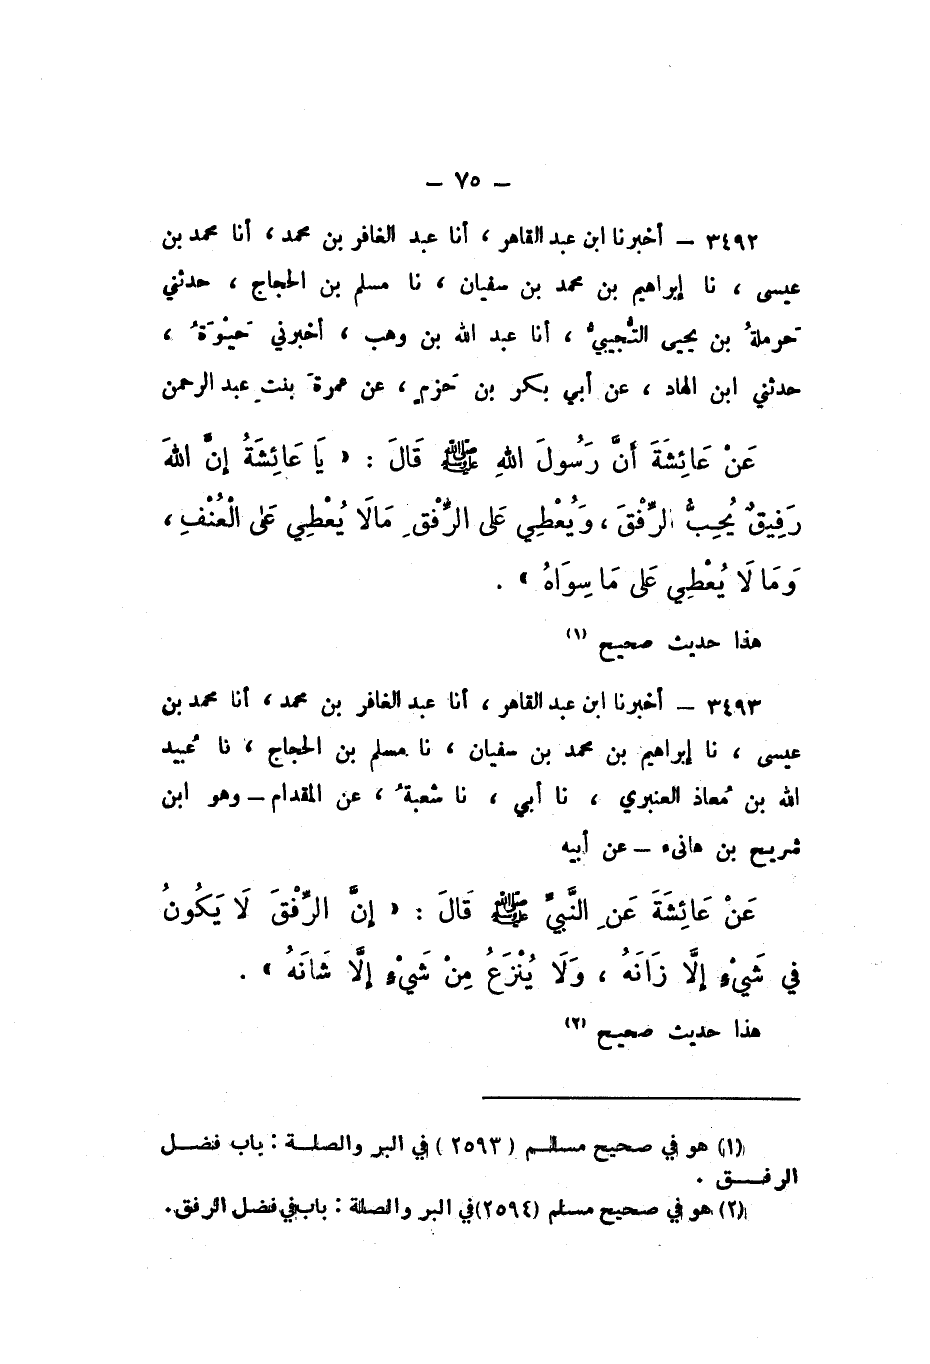 — ٧٥ —
٣٤٩٢ — أخبرنا ابن عبد القاهر ، أنا عبد الغافر بن محمد ، أنا محمد بن
عيسى ، نا إبراهيم بن محمد بن سفيان ، نا مسلم بن الحجاج ، حدثني
حَرملةُ بن يحيى التُّجيبيُّ ، أنا عبد الله بن وهب ، أخبرني حَيْوَةُ ،
حدثني ابن الهاد ، عن أبي بكر بن حَزمٍ ، عن عمرةَ بنتِ عبد الرحمن
عَنْ عَائِشَةَ أَنَّ رَسُولَ اللهِ ﷺ قَالَ : « يَا عَائِشَةُ إِنَّ اللهَ
رَفِيقٌ يُحِبُّ الرِّفْقَ ، وَيُعْطِي عَلى الرِّفْقِ مَالَا يُعْطِي عَلى الْعُنْفِ ،
وَمَا لَا يُعْطِي عَلى مَا سِوَاهُ » .
هذا حديث صحيح (١)
٣٤٩٣ — أخبرنا ابن عبد القاهر ، أنا عبد الغافر بن محمد ، أنا محمد بن
عيسى ، نا إبراهيم بن محمد بن سفيان ، نا مسلم بن الحجاج ، نا عُبيد
الله بن مُعاذ العنبري ، نا أبي ، نا شعبةُ ، عن المقدام — وهو ابن
شريح بن هانىء — عن أبيه
عَنْ عَائِشَةَ عَنِ النَّبيِّ ﷺ قَالَ : « إِنَّ الرِّفْقَ لَا يَكُونُ
في شَيْءٍ إِلَّا زَانَهُ ، وَلَا يُنْزَعُ مِنْ شَيْءٍ إِلَّا شَانَهُ » .
هذا حديث صحيح (٢)
(١) هو في صحيح مسلم ( ٢٥٩٣ ) في البر والصلة : باب فضل
الرفق .
(٢) هو في صحيح مسلم (٢٥٩٤) في البر والصلة : باب في فضل الرفق .